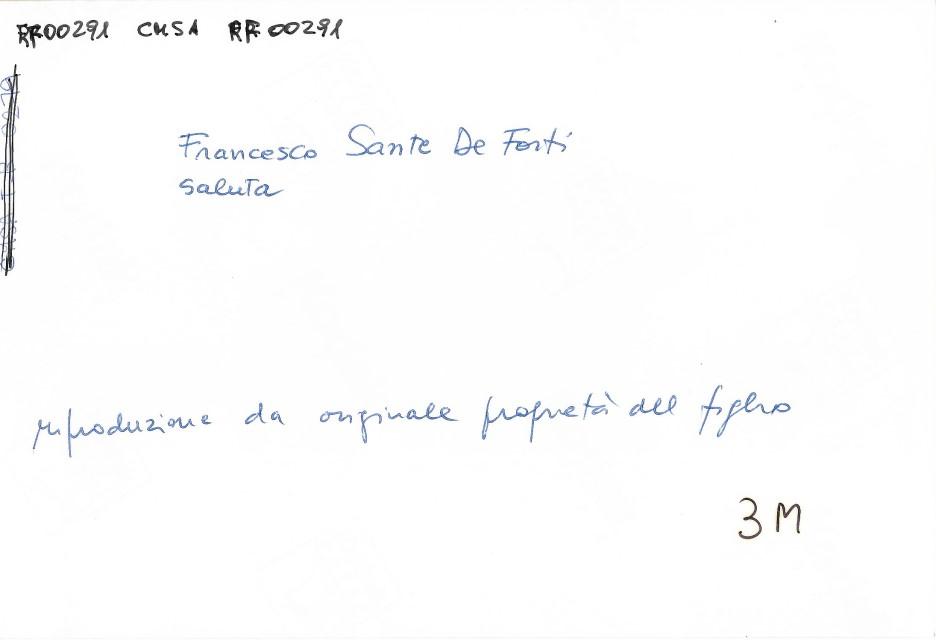 RF00291 CMSA RF00291
Francesco Sante De Forti
saluta
riproduzione da originale proprietà del figlio
3M